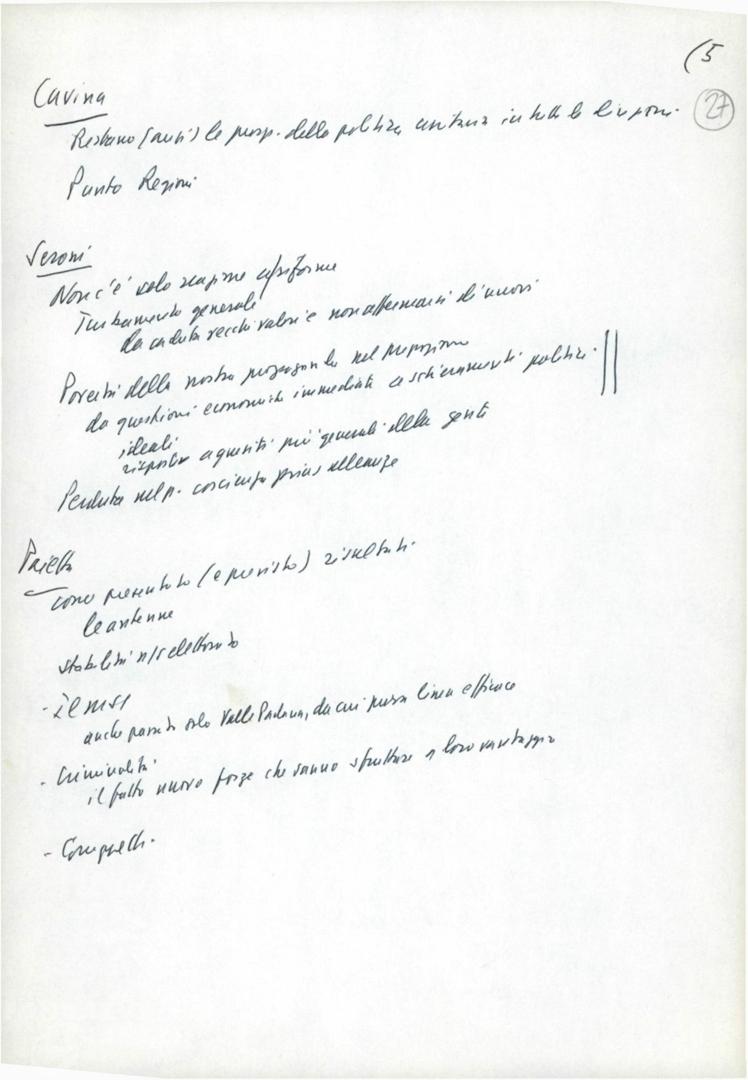 (5
27
Cavina
Restano (anzi) le prosp. della politica unitaria in tutte le
Punto Regioni
Veroni
Non c'è solo reazione a riforme
Turbamento generale
da caduta vecchi valori e non affermarsi di nuovi
Povertà della nostra propaganda nel
da questioni economiche immediate a schieramenti politici
ideali
risposta a quesiti più generali della gente
Perduta nel p. coscienza alleanze
Pajetta
come presentato (e previsto) risultati
le antenne
stabilità n/s elettorato
- il MSI
anche solo Valle Padana, da cui linea efficace
- Criminalità
il fatto nuovo forze che vanno sfruttare a loro vantaggio
- Compatti.